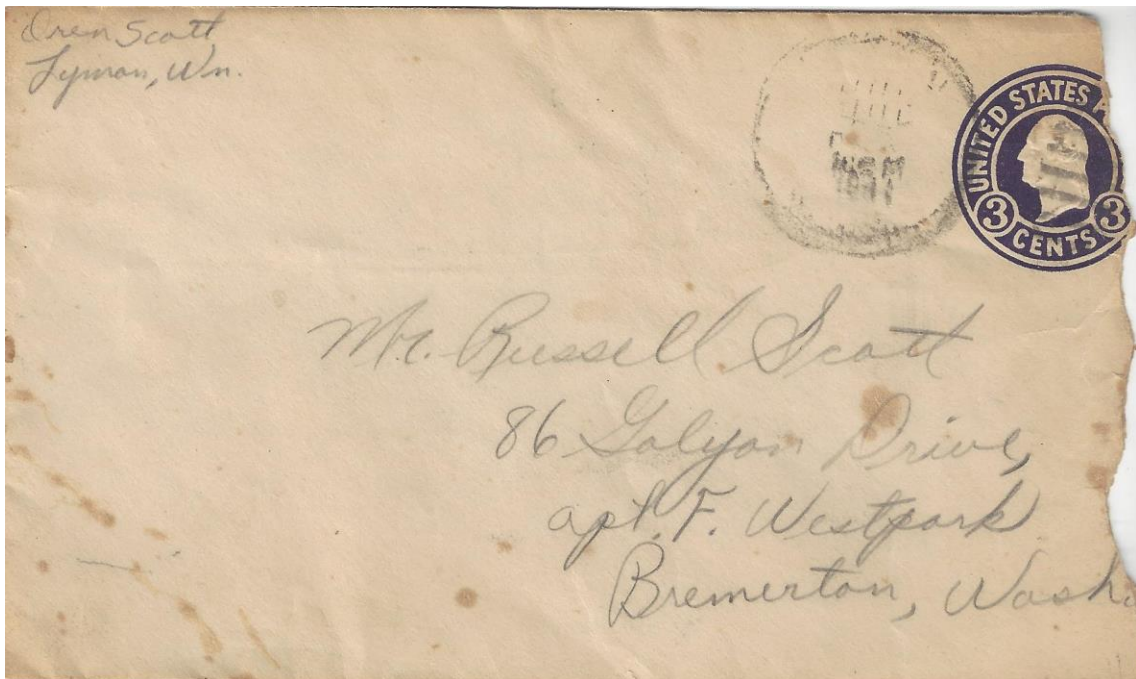 Oren Scott
Lyman, Wn.
UNITED STATES A
3 CENTS 3
Mr. Russell Scott
86 Golyon Drive,
apt. F. Westpark
Bremerton, Wash.